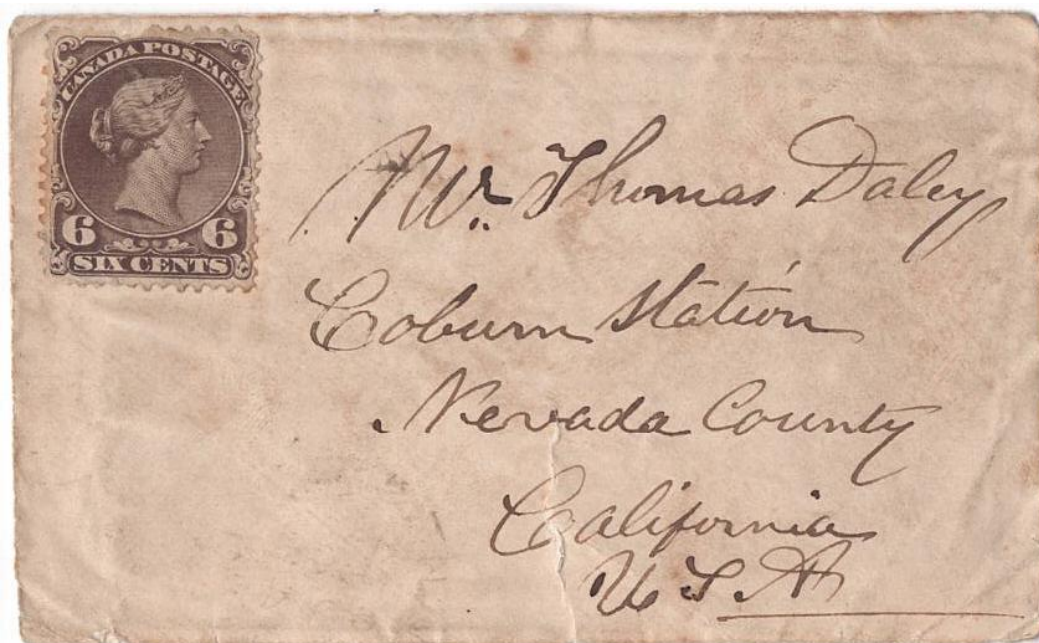 CANADA POSTAGE
6 6
SIX CENTS
Mr. Thomas Daley
Coburn Station
Nevada County
California
U.S.A